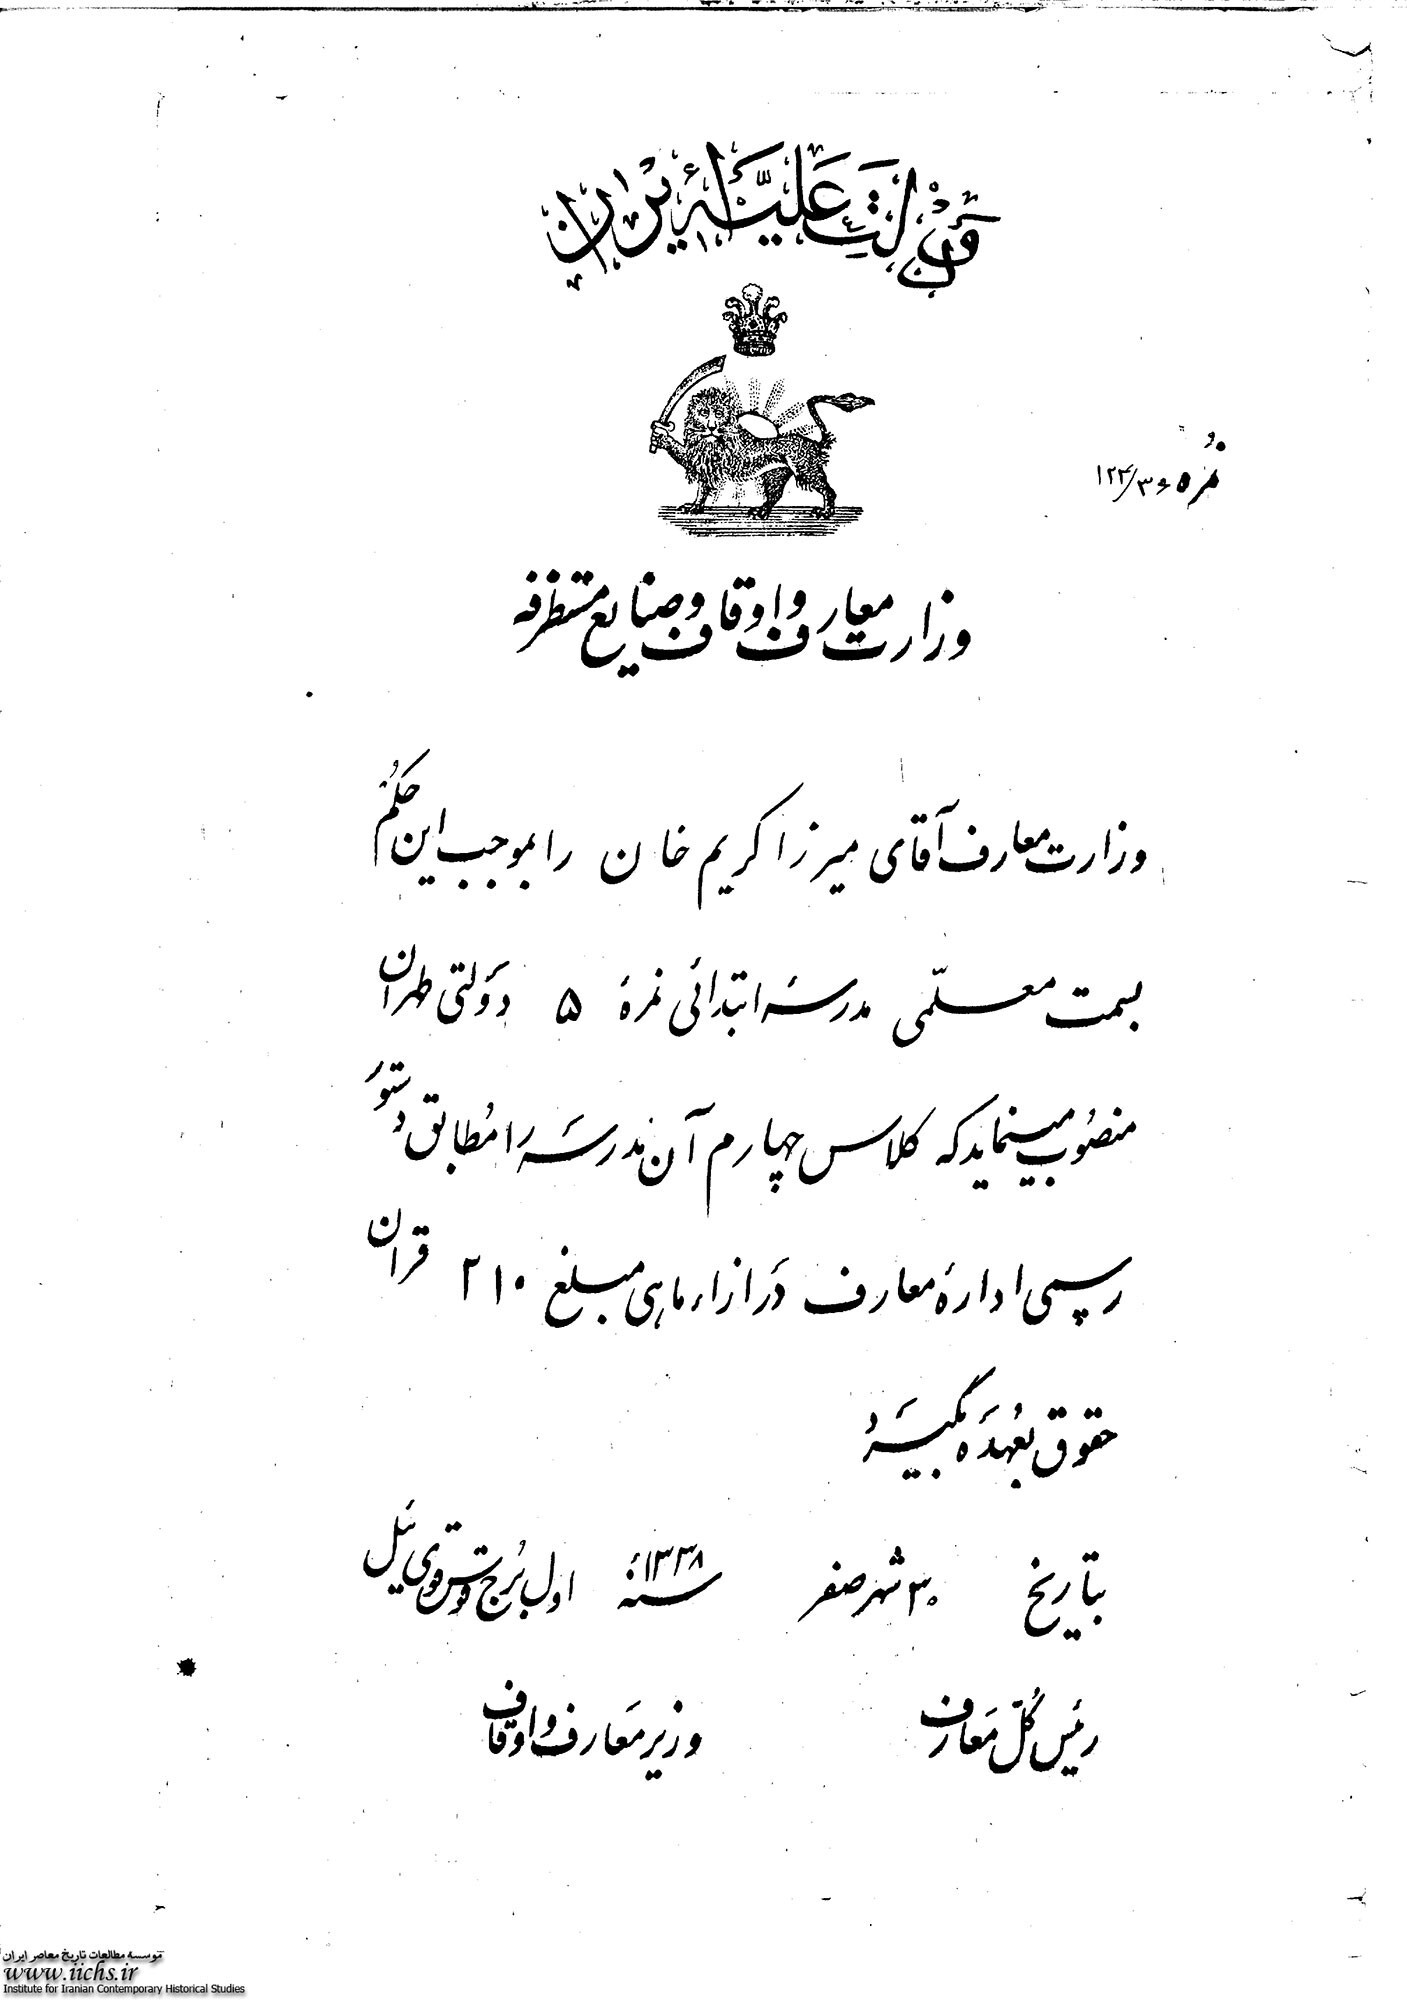 دولت علیه ایران
نمره ۱۲۴/۳۶
وزارت معارف و اوقاف و صنایع مستظرفه
وزارت معارف آقای میرزا کریم خان را بموجب این حکم
بسمت معلّمی مدرسه ابتدائی نمرهٔ ۵ دولتی طهران
منصوب مینماید که کلاس چهارم آن مدرسه را مطابق دستور
رسمی ادارهٔ معارف در ازاء ماهی مبلغ ۲۱۰ قران
حقوق بعهده بگیرد
بتاریخ ۳۰ شهر صفر سنهٔ ۱۳۳۸ اول برج قوس قوی ئیل
رئیس کلّ معارف وزیر معارف و اوقاف
موسسه مطالعات تاریخ معاصر ایران
www.iichs.ir
Institute for Iranian Contemporary Historical Studies